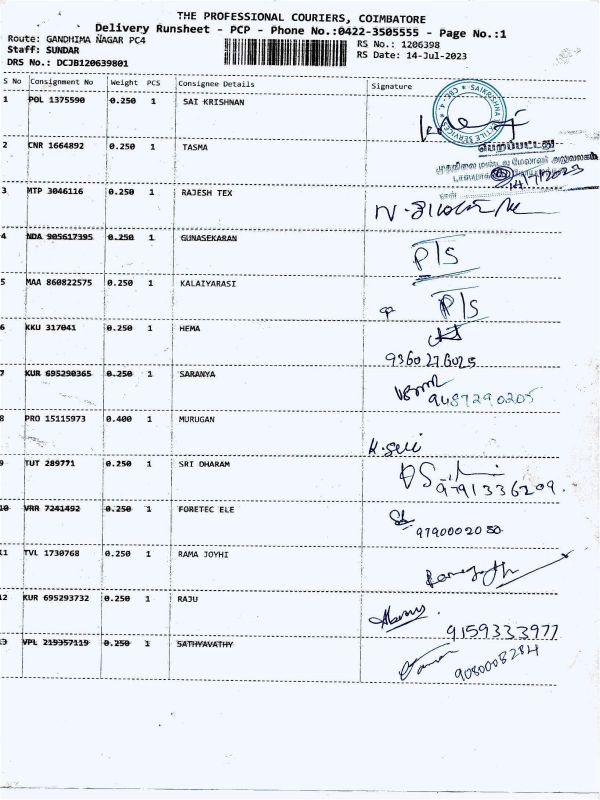 THE PROFESSIONAL COURIERS, COIMBATORE
Delivery Runsheet - PCP - Phone No.:0422-3505555 - Page No.:1
Route: GANDHIMA NAGAR PC4
RS No.: 1206398
Staff: SUNDAR
RS Date: 14-Jul-2023
DRS No.: DCJB120639801
S No Consignment No Weight PCS Consignee Details Signature
1 POL 1375590 0.250 1 SAI KRISHNAN
2 CNR 1664892 0.250 1 TASMA
பெறப்பட்டது
3 MTP 3046116 0.250 1 RAJESH TEX
4 NDA 905617395 0.250 1 GUNASEKARAN
P/S
5 MAA 860822575 0.250 1 KALAIYARASI
P/S
6 KKU 317041 0.250 1 HEMA
9360276025
7 KUR 695290365 0.250 1 SARANYA
9487290205
8 PRO 15115973 0.400 1 MURUGAN
K. Selvi
9 TUT 289771 0.250 1 SRI DHARAM
9791336209.
10 VRR 7241492 0.250 1 FORETEC ELE
9790002050
11 TVL 1730768 0.250 1 RAMA JOYHI
12 KUR 695293732 0.250 1 RAJU
9159333977
13 VPL 219357119 0.250 1 SATHYAVATHY
9080008284